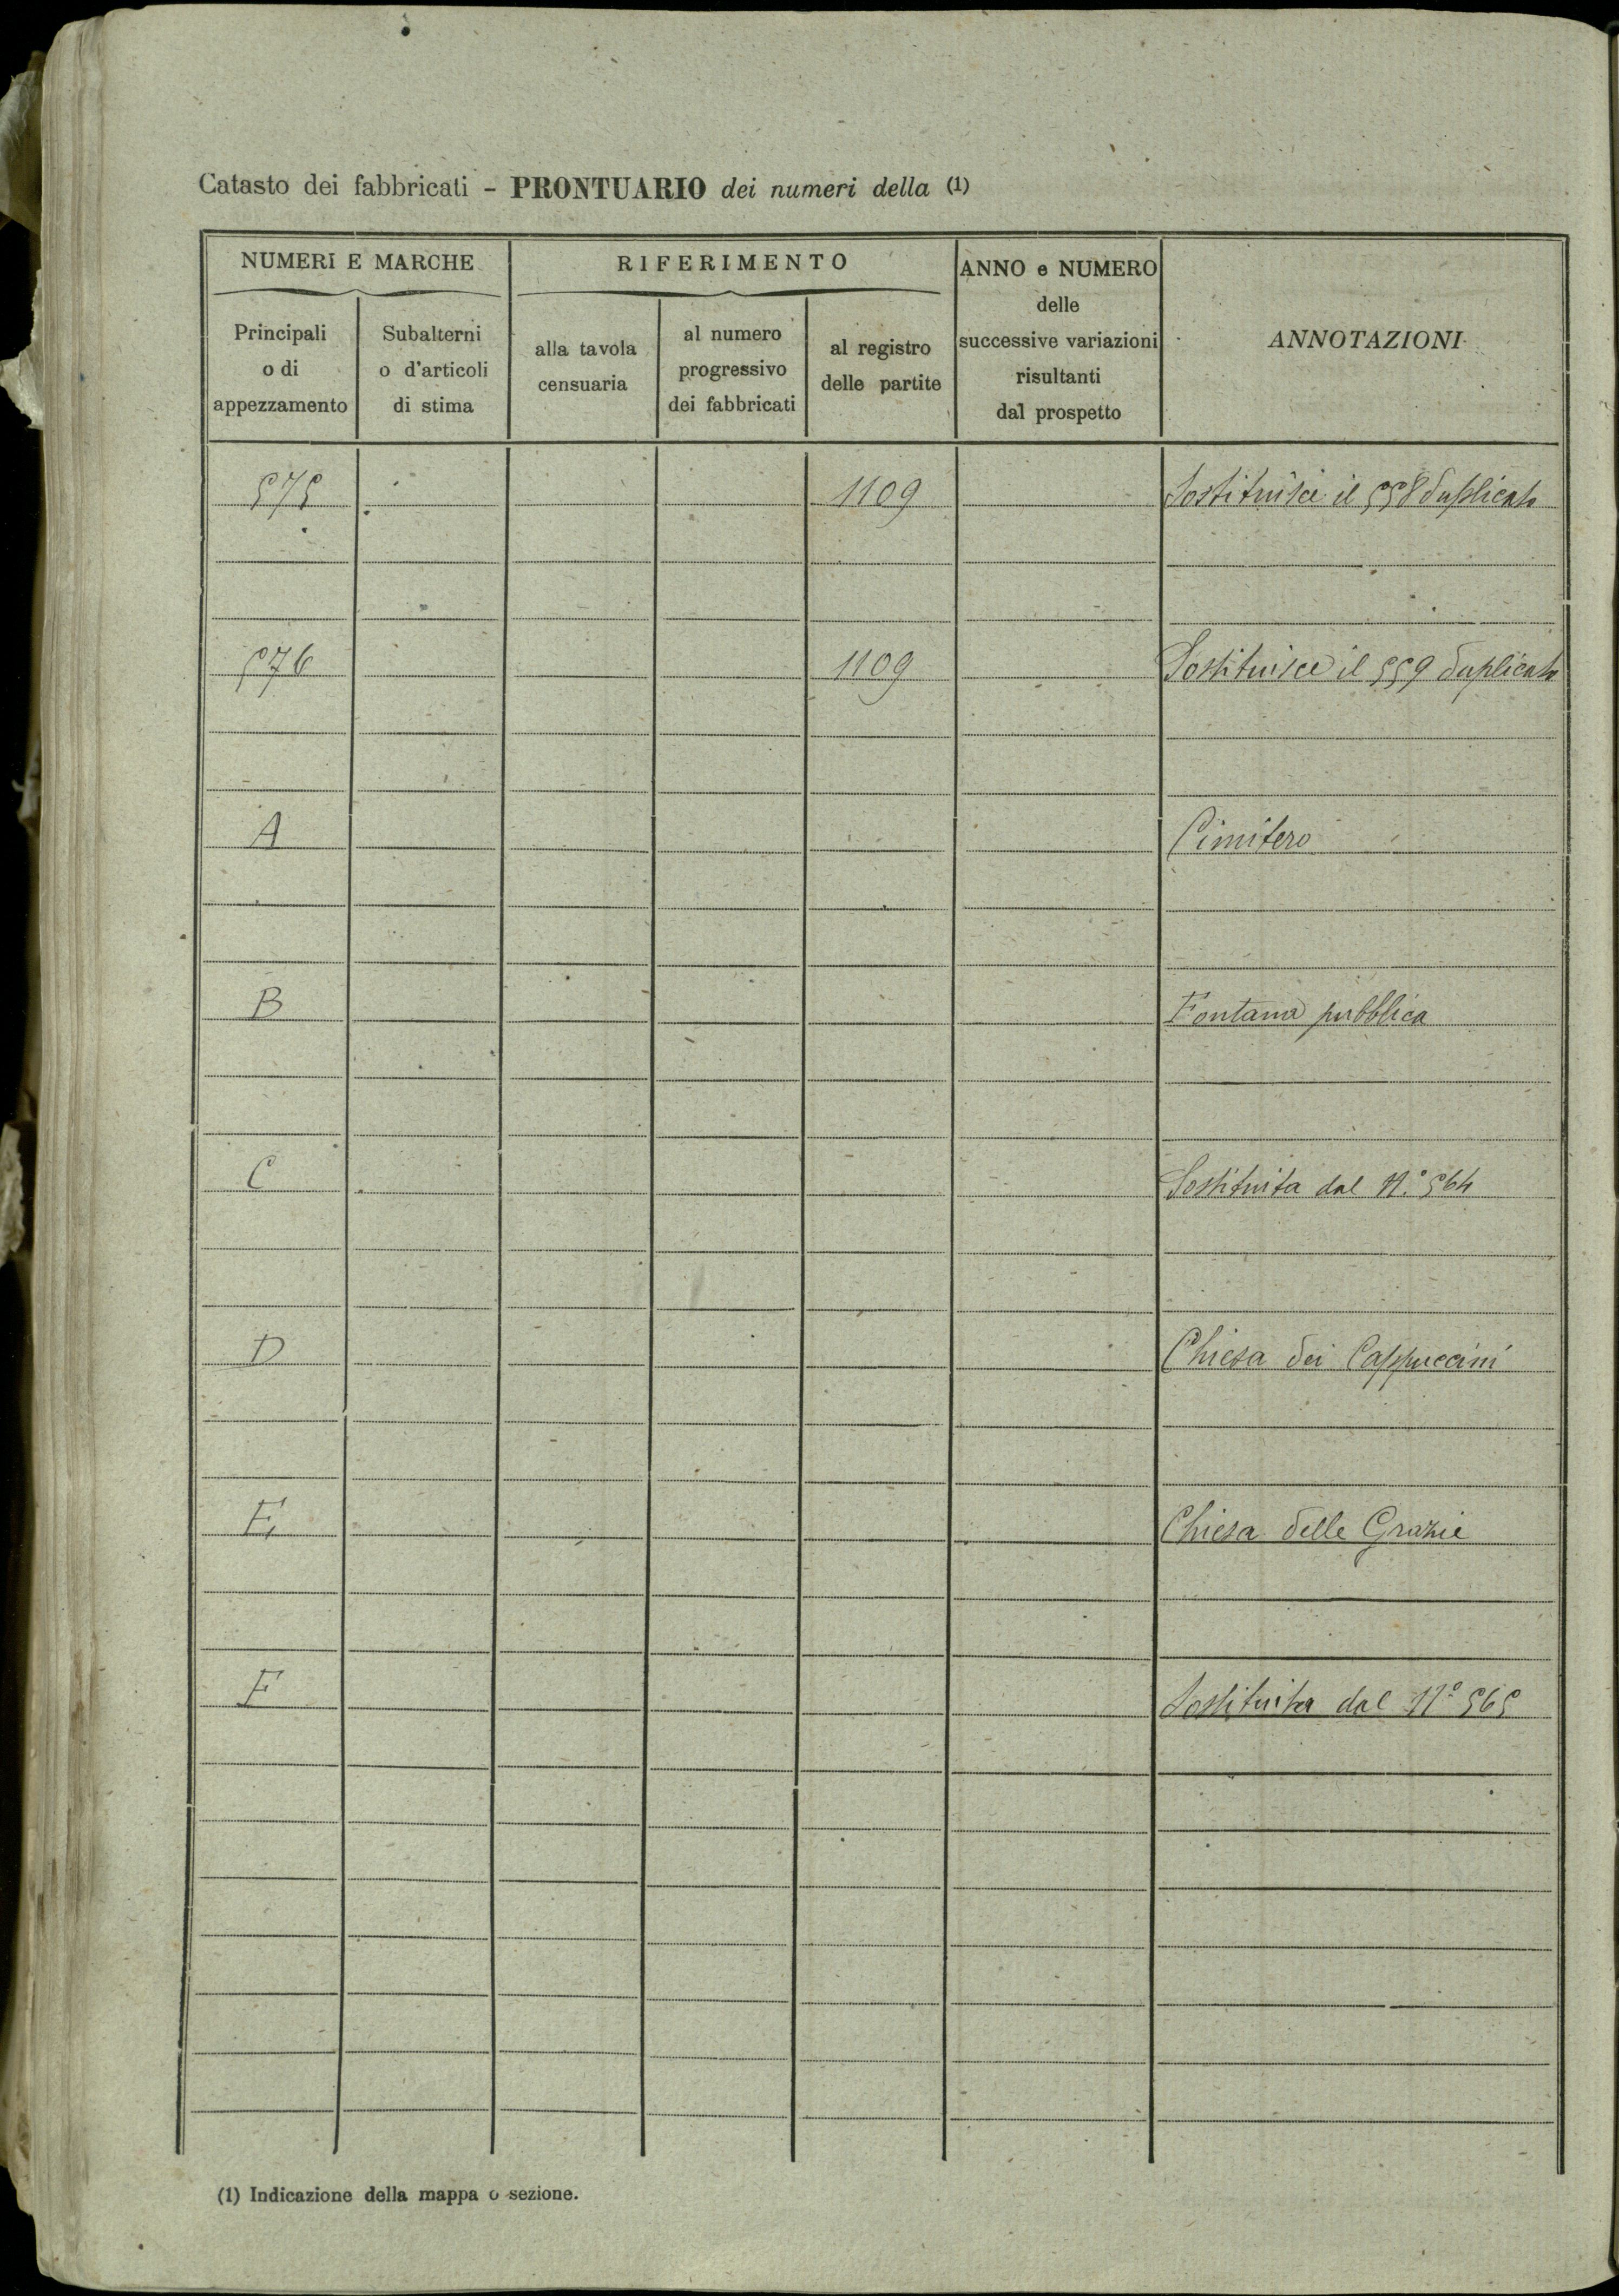 Catasto dei fabbricati - PRONTUARIO dei numeri della (1)
NUMERI E MARCHE
RIFERIMENTO
ANNO e NUMERO
delle
successive variazioni
risultanti
dal prospetto
ANNOTAZIONI
Principali
o di
appezzamento
Subalterni
o d'articoli
di stima
alla tavola
censuaria
al numero
progressivo
dei fabbricati
al registro
delle partite
575 1109 Sostituisce il 558 duplicato
576 1109 Sostituisce il 559 duplicato
A Cimitero
B Fontana pubblica
C Sostituita dal N.° 564
D Chiesa dei Cappuccini
E Chiesa delle Grazie
F Sostituita dal N° 565
(1) Indicazione della mappa o sezione.